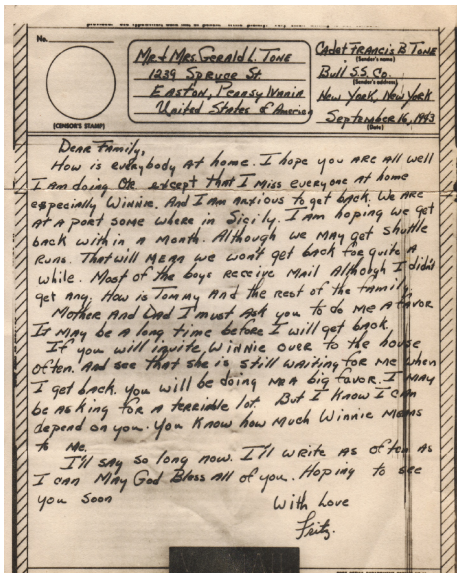 No.
(CENSOR'S STAMP)
Mr & Mrs. Gerald L. Tone
1239 Spruce St.
Easton, Pennsylvania
United States of America
Cadet Francis B Tone
(Sender's name)
Bull S.S. Co.
(Sender's address)
New York, New York
September 16, 1943
(Date)
Dear Family,
How is everybody at home. I hope you are all well
I am doing OK except that I miss everyone at home
especially Winnie. And I am anxious to get back. We are
at a port some where in Sicily. I am hoping we get
back with in a month. Although we may get shuttle
runs. That will mean we won't get back for quite a
while. Most of the boys receive mail Although I didn't
get any. How is Tommy and the rest of the family.
Mother and Dad I must ask you to do me a favor
It may be a long time before I will get back.
If you will invite Winnie over to the house
often. And see that she is still waiting for me when
I get back. You will be doing me a big favor. I may
be asking for a terriable lot. But I know I can
depend on you. You know how much Winnie means
to me.
I'll say so long now. I'll write as often as
I can May God Bless all of you. Hoping to see
you soon
With Love
Fritz.